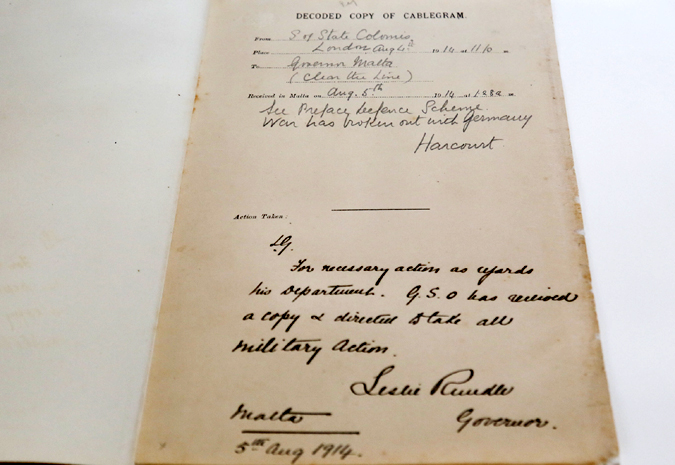 DECODED COPY OF CABLEGRAM.
From S of State Colonies
Place London Aug 4th 1914 at 11/0 m
To Governor Malta
(Clear the Line)
Received in Malta on Aug. 5th 1914 at m
See Preface Defence Scheme.
War has broken out with Germany
Harcourt
Action Taken:
LG.
For necessary action as regards
his Department. G.S.O has received
a copy & directed to take all
military Action.
Leslie Rundle
Malta Governor.
5th Aug 1914.